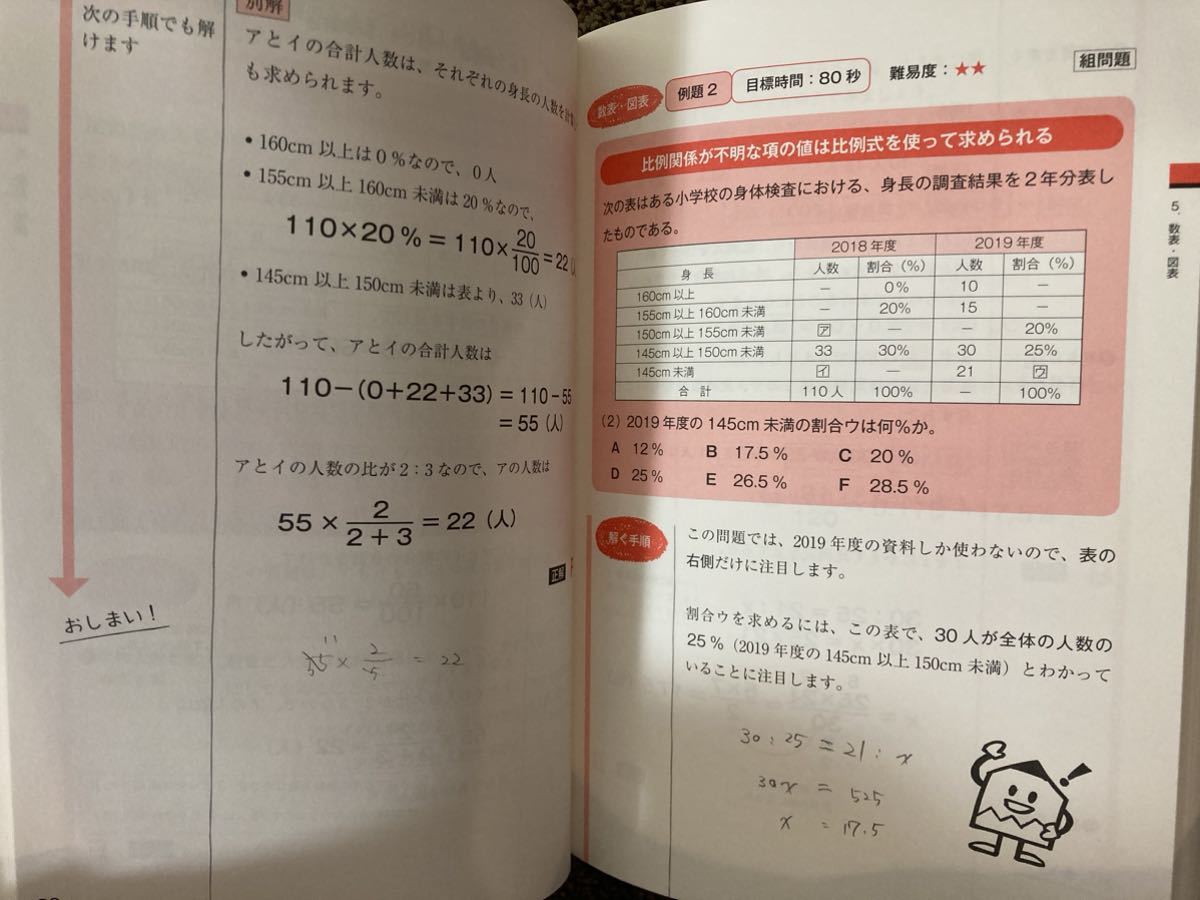 次の手順でも解
けます
別解
アとイの合計人数は、それぞれの身長の人数を計算し
も求められます。
• 160cm 以上は0％なので、0人
• 155cm 以上 160cm 未満は 20％なので、
110×20％＝110×20/100＝22（人
• 145cm 以上 150cm 未満は表より、33（人）
したがって、アとイの合計人数は
110−(0+22+33)＝110−55
＝55（人）
アとイの人数の比が2：3なので、アの人数は
55×2/(2＋3)＝22（人）
正解
おしまい！
55 × 2/5 = 22
11
組問題
数表・図表 例題2 目標時間：80秒 難易度：★★
比例関係が不明な項の値は比例式を使って求められる
次の表はある小学校の身体検査における、身長の調査結果を2年分表し
たものである。
身 長 2018年度 2019年度
人数 割合（%） 人数 割合（%）
160cm 以上 − 0％ 10 −
155cm 以上 160cm 未満 − 20％ 15 −
150cm 以上 155cm 未満 ア − − 20％
145cm 以上 150cm 未満 33 30％ 30 25％
145cm 未満 イ − 21 ウ
合 計 110人 100％ − 100％
（2）2019年度の145cm 未満の割合ウは何％か。
A 12％ B 17.5％ C 20％
D 25％ E 26.5％ F 28.5％
解く手順
この問題では、2019年度の資料しか使わないので、表の
右側だけに注目します。
割合ウを求めるには、この表で、30人が全体の人数の
25％（2019年度の145cm 以上 150cm 未満）とわかって
いることに注目します。
30 : 25 = 21 : x
30x = 525
x = 17.5
5．数表・図表